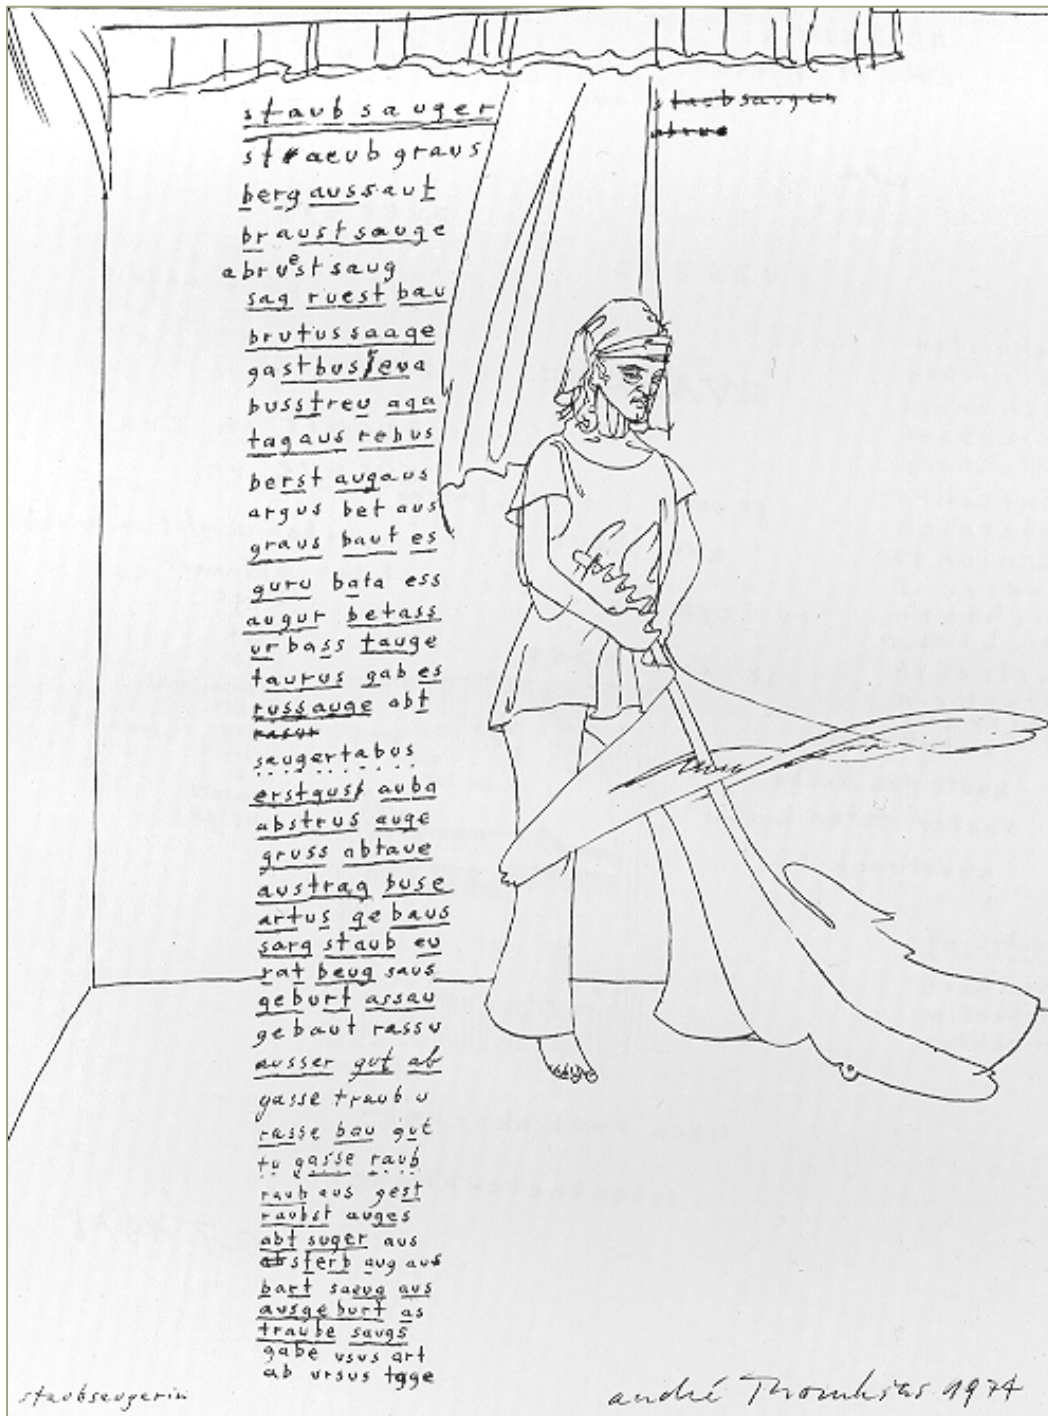 staubsauger
staeub graus
berg aussaut
braust sauge
abruest saug
sag ruest bau
brutus saage
gastbus reua
busstreu aga
tagaus rebus
berst augaus
argus bet aus
graus baut es
guru bata ess
augur betass
ur bass tauge
taurus gab es
russauge abt
rasur
saugertabus
erstguss auba
abstrus auge
gruss abtaue
austrag buse
artus ge baus
sarg staub eu
rat beug saus
geburt assau
gebaut rassu
ausser gut ab
gasse traub u
rasse bau gut
tu gasse raub
raub aus gest
raubst auges
abt suger aus
absterb aug aus
bart saeug aus
ausgeburt as
traube saugs
gabe usus art
ab ursus tgge
staubsauger
abrue
staubsaugerin
andré Thomkins 1974